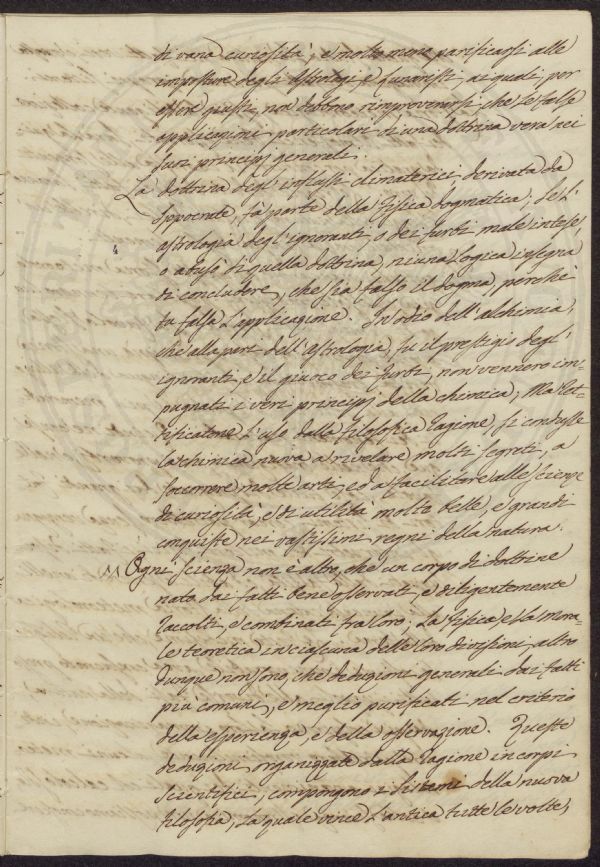 di vana curiosità; e molto meno parificarsi alle
imposture degli Astrologi, e Lunaristi, ai quali, per
essere giusti, non debbono rimproverarsi che le false
applicazioni particolari di una dottrina vera nei
suoi principj generali.
La dottrina degl'influssi climaterici derivata da
Ippocrate, fà parte della Fisica dogmatica; se l'
astrologia degl'ignoranti, o dei furbi male intese,
o abusò di quella dottrina, niuna logica insegna
di concludere, che sia falso il dogma, perchè
fu falsa l'applicazione. In odio dell'alchimia,
che alla pari dell'astrologia, fu il prestigio degl'
ignoranti, e il giuoco dei furbi, non vennero im-
pugnati i veri principj della chimica; Ma ret-
tificatone l'uso dalla filosofica ragione, si condusse
la chimica nuova a rivelare molti segreti, a
soccorrere molte arti, ed a facilitare alle scienze
di curiosità, e di utilità molto belle, e grandi
conquiste nei vastissimi regni della natura.
Ogni scienza non è altro, che un corpo di dottrine
nato dai fatti bene osservati, e diligentemente
raccolti, e combinati fra loro; La Fisica, e la mora-
le teoretica in ciascuna delle loro divisioni, altro
dunque non sono, che deduzioni generali dai fatti
più comuni, e meglio purificati nel criterio
della esperienza, e della osservazione. Queste
deduzioni organizzate dalla ragione in corpi
scientifici, compongono i sistemi della nuova
filosofia, la quale vince l'antica tutte le volte,